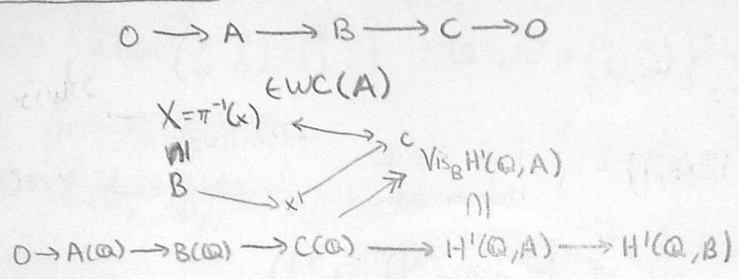 0 → A → B → C → 0
∈WC(A)
X=π⁻¹(x) ↔ c
∩|
Vis_B H'(Q,A)
B → x
∩|
0→A(Q)→B(Q)→C(Q)→H'(Q,A)→H'(Q,B)